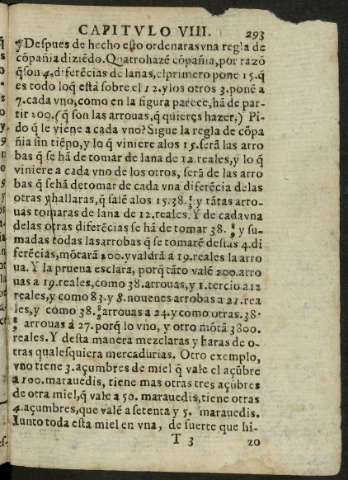 CAPITVLO VIII. 293
Despues de hecho esto ordenaras vna regla de
cõpañia diziẽdo. Quatro hazẽ cõpañia, por razõ
q̃ son 4. diferẽcias de lanas, el primero pone 15. q̃
es todo lo q̃ està sobre el 12. y los otros 3. ponẽ a
7. cada vno, como en la figura parece, hã de par-
tir 200. (q̃ son las arrouas, q̃ quieres hazer,) Pi-
do q̃ le viene a cada vno? Sigue la regla de cõpa
ñia sin tiẽpo, y lo q̃ viniere a los 15. serã las arro
bas q̃ se hã de tomar de lana de 12. reales, y lo q̃
viniere a cada vno de los otros, serã de las arro
bas q̃ se hã de tomar de cada vna diferẽcia de las
otras y hallaras, q̃ salẽ a los 15. 83. y tãtas arro-
uas tomaras de lana de 12. reales. Y de cada vna
de las otras diferẽcias se hã de tomar 38. y su-
madas todas las arrobas q̃ se tomarẽ destas 4. di
ferẽcias, mõtarã 200. y valdrã a 19. reales la arro
ua. Y la prueua es clara, porq̃ tãto valẽ 200. arro
uas a 19. reales, como 38. arrouas, y 1. tercio a 12
reales, y como 83. y 8. nouenes arrobas a 21. rea
les, y como 38. arrouas a 24. y como otras 38.
arrouas a 27. porq̃ lo vno, y otro mõtã 3800.
reales. Y desta manera mezclaras y haras de o-
tras qualesquiera mercadurias. Otro exemplo,
vno tiene 3. açumbres de miel q̃ vale el açũbre
a 100. marauedis, tiene mas otras tres açũbres
de otra miel, q̃ vale a 50. marauedis, tiene otras
4. açumbres, que valẽ a setenta y 5. marauedis.
Iunto toda esta miel en vna, de suerte que hi-
T 3 20